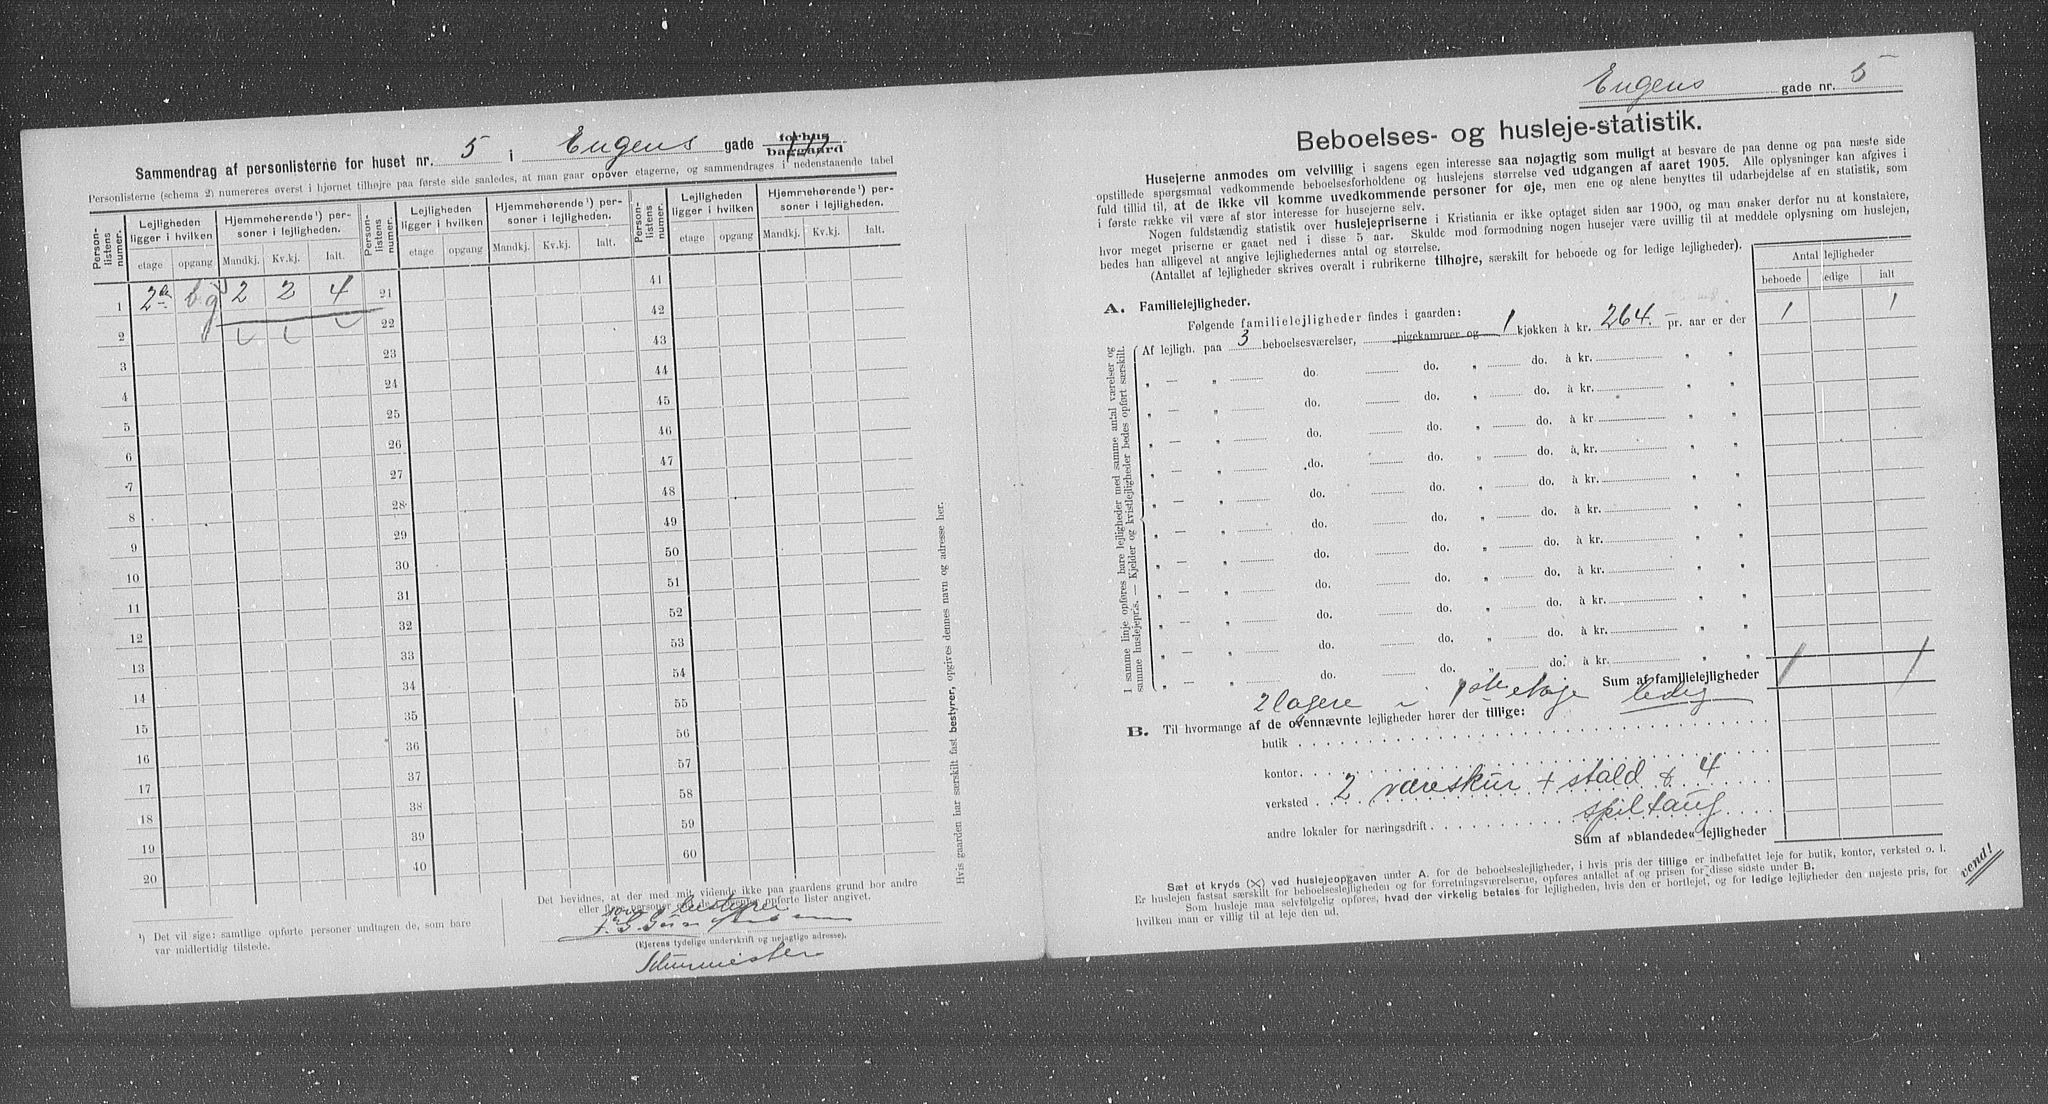 Sammendrag af personlisterne for huset nr. 5 i Eugens gade forhus
baggaard
Personlisterne (schema 2) numereres øverst i hjørnet tilhøjre paa første side saaledes, at man gaar opover etagerne, og sammendrages i nedenstaaende tabel
Person-listens numer. Lejligheden ligger i hvilken Hjemmehørende¹) personer i lejligheden. Person-listens numer. Lejligheden ligger i hvilken Hjemmehørende¹) personer i lejligheden. Person-listens numer. Lejligheden ligger i hvilken Hjemmehørende¹) personer i lejligheden.
etage opgang Mandkj. Kv.kj. Ialt. etage opgang Mandkj. Kv.kj. Ialt. etage opgang Mandkj. Kv.kj. Ialt.
1 2de bg 2 2 4 21 41
2 22 42
3 23 43
4 24 44
5 25 45
6 26 46
7 27 47
8 28 48
9 29 49
10 30 50
11 31 51
12 32 52
13 33 53
14 34 54
15 35 55
16 36 56
17 37 57
18 38 58
19 39 59
20 40 60
¹) Det vil sige: samtlige opførte personer undtagen de, som bare
var midlertidig tilstede.
Det bevidnes, at der med mit vidende ikke paa gaardens grund bor andre
eller flere personer end de opførte lister angivet.
bestyrer
(Ejerens tydelige underskrift og nøjagtige adresse).
Hvis gaarden har særskilt fast bestyrer, opgives dennes navn og adresse her.
Eugens gade nr. 5
Beboelses- og husleje-statistik.
Husejerne anmodes om velvillig i sagens egen interesse saa nøjagtig som muligt at besvare de paa denne og paa næste side
opstillede spørgsmaal vedkommende beboelsesforholdene og huslejens størrelse ved udgangen af aaret 1905. Alle oplysninger kan afgives i
fuld tillid til, at de ikke vil komme uvedkommende personer for øje, men ene og alene benyttes til udarbejdelse af en statistik, som
i første række vil være af stor interesse for husejerne selv.
Nogen fuldstændig statistik over huslejepriserne i Kristiania er ikke optaget siden aar 1900, og man ønsker derfor nu at konstatere,
hvor meget priserne er gaaet ned i disse 5 aar. Skulde mod formodning nogen husejer være uvillig til at meddele oplysning om huslejen,
bedes han alligevel at angive lejlighedernes antal og størrelse.
(Antallet af lejligheder skrives overalt i rubrikerne tilhøjre, særskilt for beboede og for ledige lejligheder).
Antal lejligheder
beboede ledige ialt
A. Familielejligheder.
Følgende familielejligheder findes i gaarden:
Af lejligh. paa 3 beboelsesværelser, pigekammer og 1 kjøkken à kr. 264.- pr. aar er der 1 1
„ — „ do. do. „ do. à kr. „ „
„ — „ do. do. „ do. à kr. „ „
„ — „ do. do. „ do. à kr. „ „
„ — „ do. do. „ do. à kr. „ „
„ — „ do. do. „ do. à kr. „ „
„ — „ do. do. „ do. à kr. „ „
„ — „ do. do. „ do. à kr. „ „
„ — „ do. do. „ do. à kr. „ „
„ — „ do. do. „ do. à kr. „ „
„ — „ do. do. „ do. à kr. „ „
„ — „ do. do. „ do. à kr. „ „
I samme linje opføres bare lejligheder med samme antal værelser og
samme huslejepris. — Kjelder og kvistlejligheder bedes opført særskilt.
Sum af familielejligheder 1 1
2 lagere i 1ste etage ledig
B. Til hvormange af de ovennævnte lejligheder hører der tillige:
butik
kontor
verksted 2 væreskur + stald à 4
spiltaug
andre lokaler for næringsdrift
Sum af »blandede« lejligheder
Sæt et kryds (×) ved huslejeopgaven under A. for de beboelseslejligheder, i hvis pris der tillige er indbefattet leje for butik, kontor, verksted o. l.
Er huslejen fastsat særskilt for beboelseslejligheden og for forretningsværelserne, opføres antallet af og prisen for disse sidste under B.
Som husleje maa selvfølgelig opføres, hvad der virkelig betales for lejligheden, hvis den er bortlejet, og for ledige lejligheder den nøjeste pris, for
hvilken man er villig til at leje den ud.
vend!